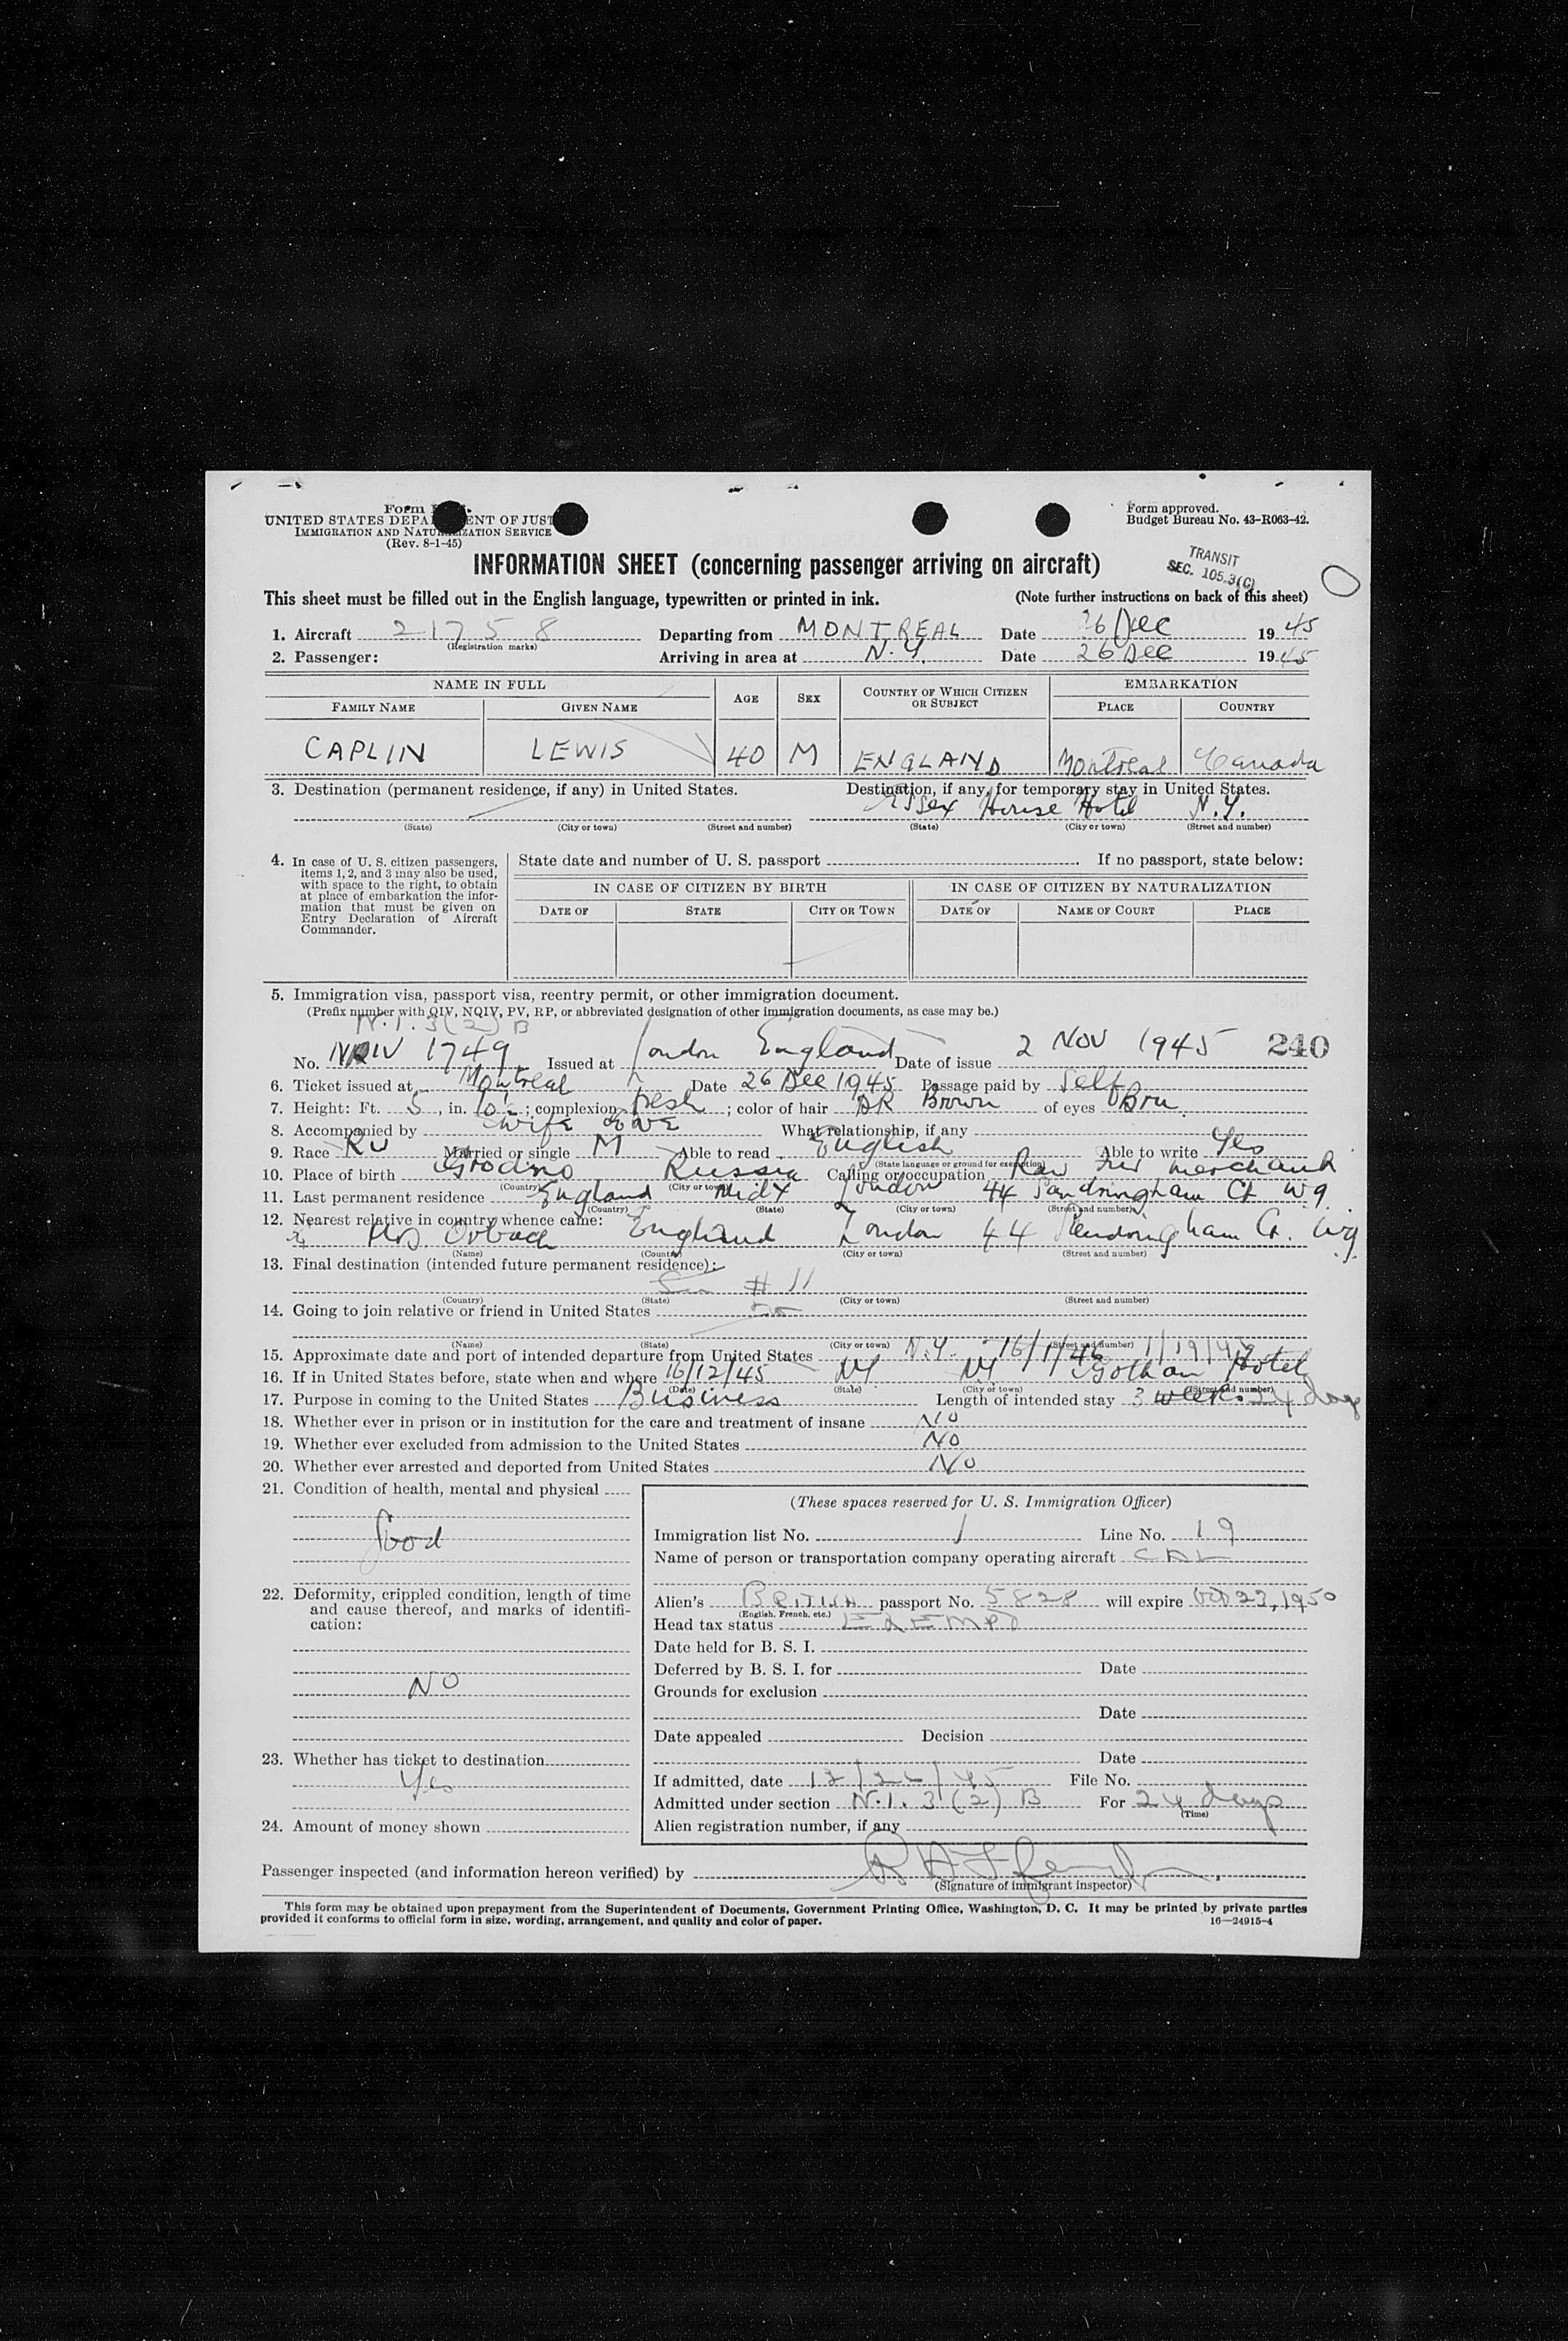 Form
UNITED STATES DEPA ENT OF JUST
IMMIGRATION AND NATURALIZATION SERVICE
(Rev. 8-1-45)
Form approved.
Budget Bureau No. 43-R063-42.
INFORMATION SHEET (concerning passenger arriving on aircraft)
TRANSIT
SEC. 105.3(C)
This sheet must be filled out in the English language, typewritten or printed in ink. (Note further instructions on back of this sheet)
1. Aircraft 21758 Departing from MONTREAL Date 26 Dec 1945
(Registration marks)
2. Passenger: Arriving in area at N.Y. Date 26 Dec 1945
NAME IN FULL AGE SEX COUNTRY OF WHICH CITIZEN OR SUBJECT EMBARKATION
FAMILY NAME GIVEN NAME PLACE COUNTRY
CAPLIN LEWIS 40 M ENGLAND Montreal Canada
3. Destination (permanent residence, if any) in United States. Destination, if any, for temporary stay in United States.
Essex House Hotel N.Y.
(State) (City or town) (Street and number) (State) (City or town) (Street and number)
4. In case of U. S. citizen passengers, items 1, 2, and 3 may also be used, with space to the right, to obtain at place of embarkation the information that must be given on Entry Declaration of Aircraft Commander.
State date and number of U. S. passport . If no passport, state below:
IN CASE OF CITIZEN BY BIRTH IN CASE OF CITIZEN BY NATURALIZATION
DATE OF STATE CITY OR TOWN DATE OF NAME OF COURT PLACE
5. Immigration visa, passport visa, reentry permit, or other immigration document.
(Prefix number with QIV, NQIV, PV, RP, or abbreviated designation of other immigration documents, as case may be.)
N.I. 3(2) B
No. NQIV 1749 Issued at London England Date of issue 2 NOV 1945 240
6. Ticket issued at Montreal Date 26 Dec 1945 Passage paid by Self
7. Height: Ft. 5, in. 10½; complexion fresh; color of hair DR Brown of eyes Brn.
8. Accompanied by wife Eve What relationship, if any
9. Race Ru Married or single M Able to read English Able to write Yes
(State language or ground for exemption)
10. Place of birth Grodno Russia Calling or occupation Raw fur merchant
(Country) (City or town)
11. Last permanent residence England Midx London 44 Sandringham Ct W9
(Country) (State) (City or town) (Street and number)
12. Nearest relative in country whence came:
Mrs. Orbach England London 44 Sandringham Ct. W9
(Name) (Country) (City or town) (Street and number)
13. Final destination (intended future permanent residence):
# 11
(Country) (State) (City or town) (Street and number)
14. Going to join relative or friend in United States
(Name) (State) (City or town) (Street and number)
15. Approximate date and port of intended departure from United States N.Y. 16/1/46
16. If in United States before, state when and where 16/12/45 NY NY Gotham Hotel
(Date) (State) (City or town) (Street and number)
17. Purpose in coming to the United States Business Length of intended stay 3 weeks 24 days
18. Whether ever in prison or in institution for the care and treatment of insane No
19. Whether ever excluded from admission to the United States No
20. Whether ever arrested and deported from United States No
21. Condition of health, mental and physical
Good
22. Deformity, crippled condition, length of time and cause thereof, and marks of identification:
NO
23. Whether has ticket to destination
Yes
24. Amount of money shown
(These spaces reserved for U. S. Immigration Officer)
Immigration list No. 1 Line No. 19
Name of person or transportation company operating aircraft CAL
Alien's BRITISH passport No. 5828 will expire Oct 23, 1950
(English, French, etc.)
Head tax status EXEMPT
Date held for B. S. I.
Deferred by B. S. I. for Date
Grounds for exclusion
Date
Date appealed Decision
Date
If admitted, date 12/26/45 File No.
Admitted under section N.I. 3(2) B For 24 days
(Time)
Alien registration number, if any
Passenger inspected (and information hereon verified) by
(Signature of immigrant inspector)
This form may be obtained upon prepayment from the Superintendent of Documents, Government Printing Office, Washington, D. C. It may be printed by private parties
provided it conforms to official form in size, wording, arrangement, and quality and color of paper. 16—24915-4